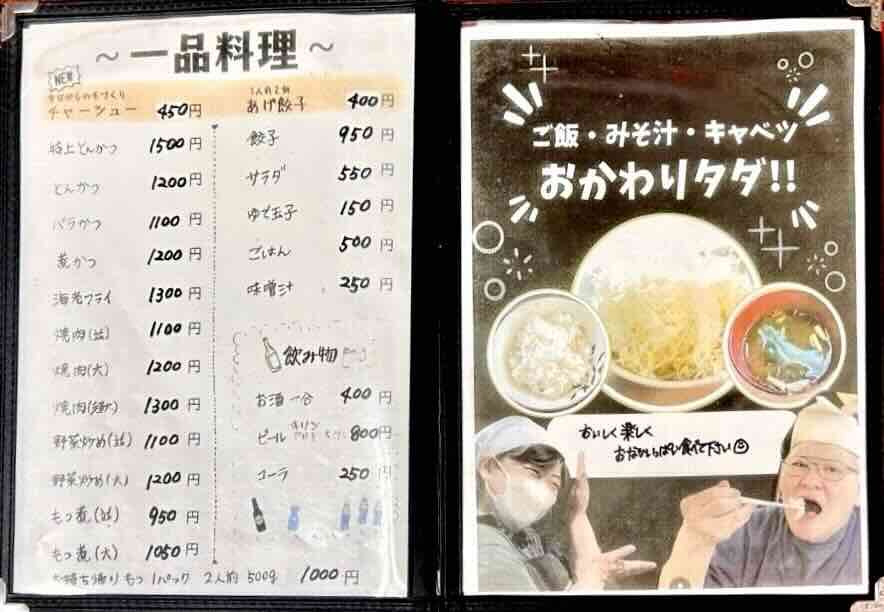 ～一品料理～
NEW
チャーシュー 450円
特上とんかつ 1500円
とんかつ 1200円
バラかつ 1100円
煮かつ 1200円
海老フライ 1300円
焼肉(並) 1100円
焼肉(大) 1200円
焼肉 1300円
野菜炒め(並) 1100円
野菜炒め(大) 1200円
もつ煮(並) 950円
もつ煮(大) 1050円
お持ち帰り もつ 1パック 2人前 500g 1000円
あげ餃子 400円
餃子 950円
サラダ 550円
ゆで玉子 150円
ごはん 500円
味噌汁 250円
飲み物
お酒 一合 400円
ビール キリン 800円
コーラ 250円
ご飯・みそ汁・キャベツ
おかわりタダ!!
おいしく楽しく
おなかいっぱい食べて下さい